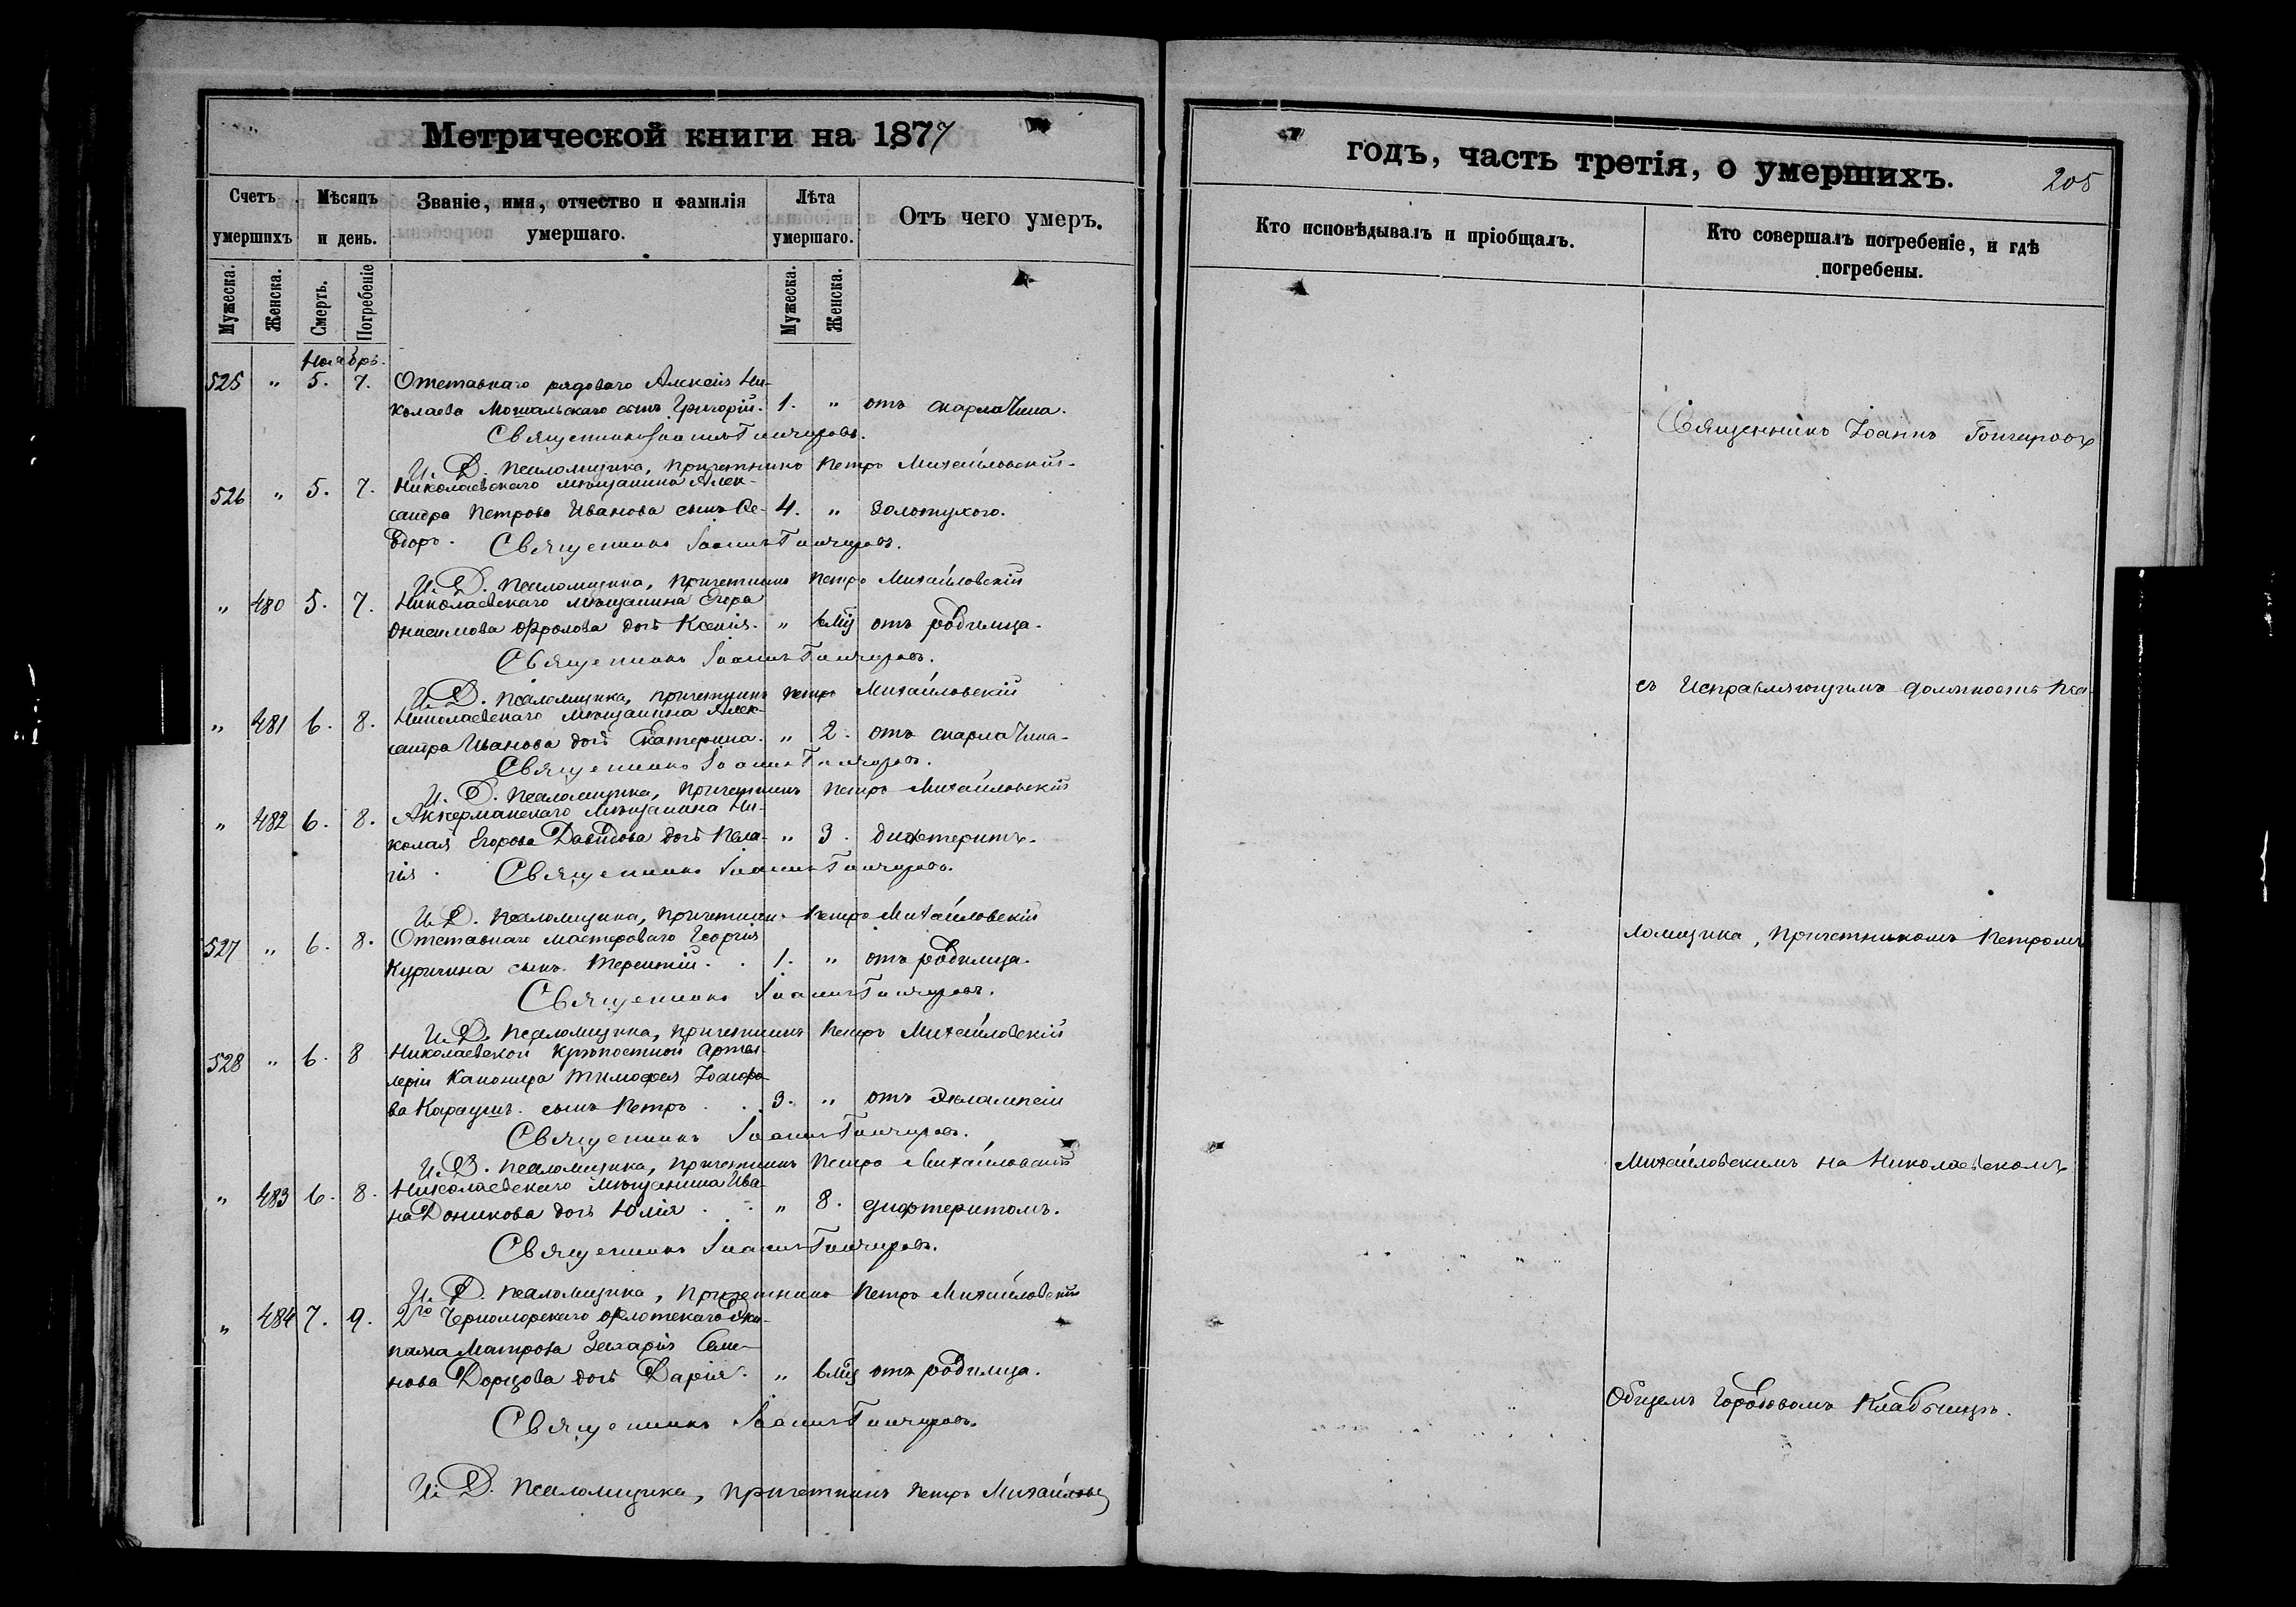 Метрической книги на 1877
годъ, часть третія, о умершихъ.
205
Счетъ умершихъ
Мѣсяцъ и день.
Званіе, имя, отчество и фамилія умершаго.
Лѣта умершаго.
Отъ чего умеръ.
Кто исповѣдывалъ и пріобщалъ.
Кто совершалъ погребеніе, и гдѣ погребены.
Мужеска.
Женска.
Смерть.
Погребеніе
Мужеска.
Женска.
Ноябрь.
525 " 5. 7. Отставнаго рядоваго Алексѣя Ни-
колаева сынъ Григорій. 1. " отъ скарлатина.
Священникъ Іоаннъ Гончаровъ.
И. Д. Псаломщика, Причетникъ Петръ Михайловскій
526 " 5. 7. Николаевскаго мѣщанина Алек-
сандра Петрова Иванова сынъ Ѳе- 4. " золотухого.
одоръ. Священникъ Іоаннъ Гончаровъ.
И. Д. Псаломщика, Причетникъ Петръ Михайловскій
" 480 5. 7. Николаевскаго мѣщанина Егора
Онисимова Фролова дочь Ксенія. " 6 мц отъ родимца.
Священникъ Іоаннъ Гончаровъ.
И. Д. Псаломщика, Причетникъ Петръ Михайловскій
" 481 6. 8. Николаевскаго мѣщанина Алек-
сандра Иванова дочь Екатерина. " 2. отъ скарлатина.
Священникъ Іоаннъ Гончаровъ.
И. Д. Псаломщика, Причетникъ Петръ Михайловскій
" 482 6. 8. Аккерманскаго Мѣщанина Ни-
колая Егорова Давидова дочь Пела- " 3. дифтеритъ.
гія. Священникъ Іоаннъ Гончаровъ.
И. Д. Псаломщика, Причетникъ Петръ Михайловскій
527 " 6. 8. Отставнаго мастероваго Георгія
Куричина сынъ Терентій. 1. " отъ родимца.
Священникъ Іоаннъ Гончаровъ.
И. Д. Псаломщика, Причетникъ Петръ Михайловскій
528 " 6. 8 Николаевской крѣпостной Артил-
леріи Канонира Тимофея
ва Карауш. сынъ Петръ 3. " отъ Эклампсіи
Священникъ Іоаннъ Гончаровъ.
И. Д. Псаломщика, Причетникъ Петръ Михайловскій
" 483 6. 8. Николаевскаго Мѣщанина Ива-
на Доникова дочь Юлія " 8. дифтеритомъ.
Священникъ Іоаннъ Гончаровъ.
И. Д. Псаломщика, Причетникъ Петръ Михайловскій
" 484 7. 9. 2го Черноморскаго флотскаго Эки-
пажа Матроса Захарія Семе-
нова Дорцова дочь Дарія. " 6 мц отъ родимца.
Священникъ Іоаннъ Гончаровъ.
И. Д. Псаломщика, Причетникъ Петръ Михайловскій
Священникъ Іоаннъ Гончаровъ
съ Исправляющимъ должность Пса-
ломщика, Причетникомъ Петромъ
Михайловскимъ на Николаевскомъ
Общемъ Городовомъ Кладбищѣ.